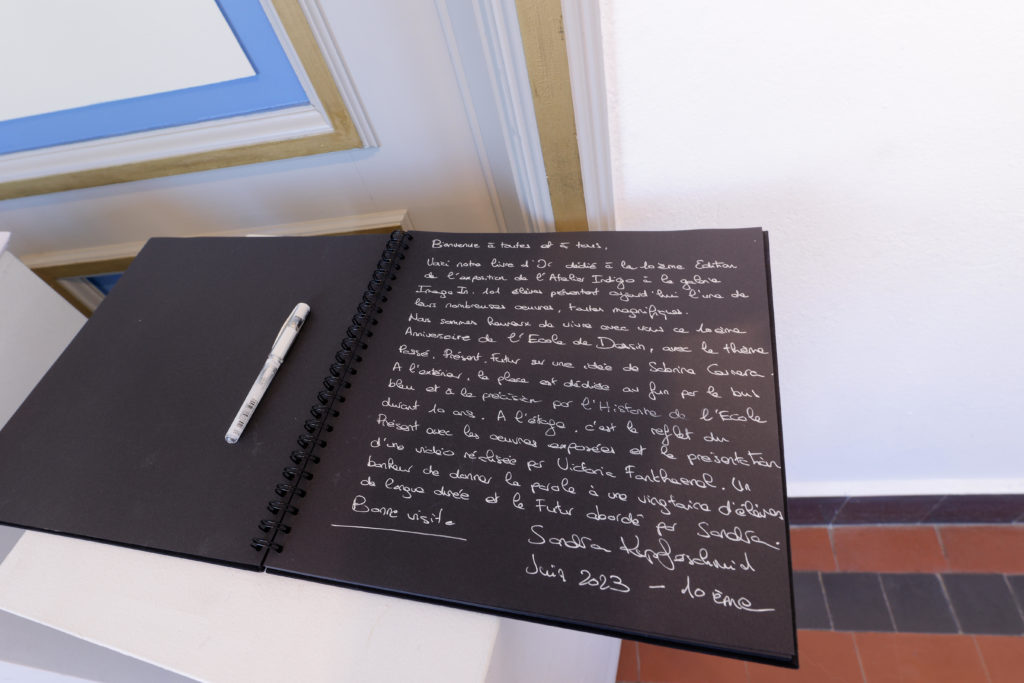 Bienvenue à toutes et à tous,
Voici notre livre d'Or dédié à la 10ème Edition
de l'exposition de l'Atelier Indigo à la galerie
Imago In. 101 élèves présentent aujourd'hui l'une de
leurs nombreuses oeuvres, toutes magnifiques.
Nous sommes heureux de vivre avec vous ce 10ème
Anniversaire de l'Ecole de Dessin, avec le thème
Passé. Présent. Futur sur une idée de Sabrina
A l'extérieur, la place est dédiée au fun par le bus
bleu et à la précision par l'Histoire de l'Ecole
durant 10 ans. A l'étage, c'est le reflet du
Présent avec les oeuvres exposées et la présentation
d'une vidéo réalisée par Victoria Un
bonheur de donner la parole à une vingtaine d'élèves
de longue durée et le Futur abordé par Sandra.
Bonne visite
Sandra
Juin 2023 - 10ème